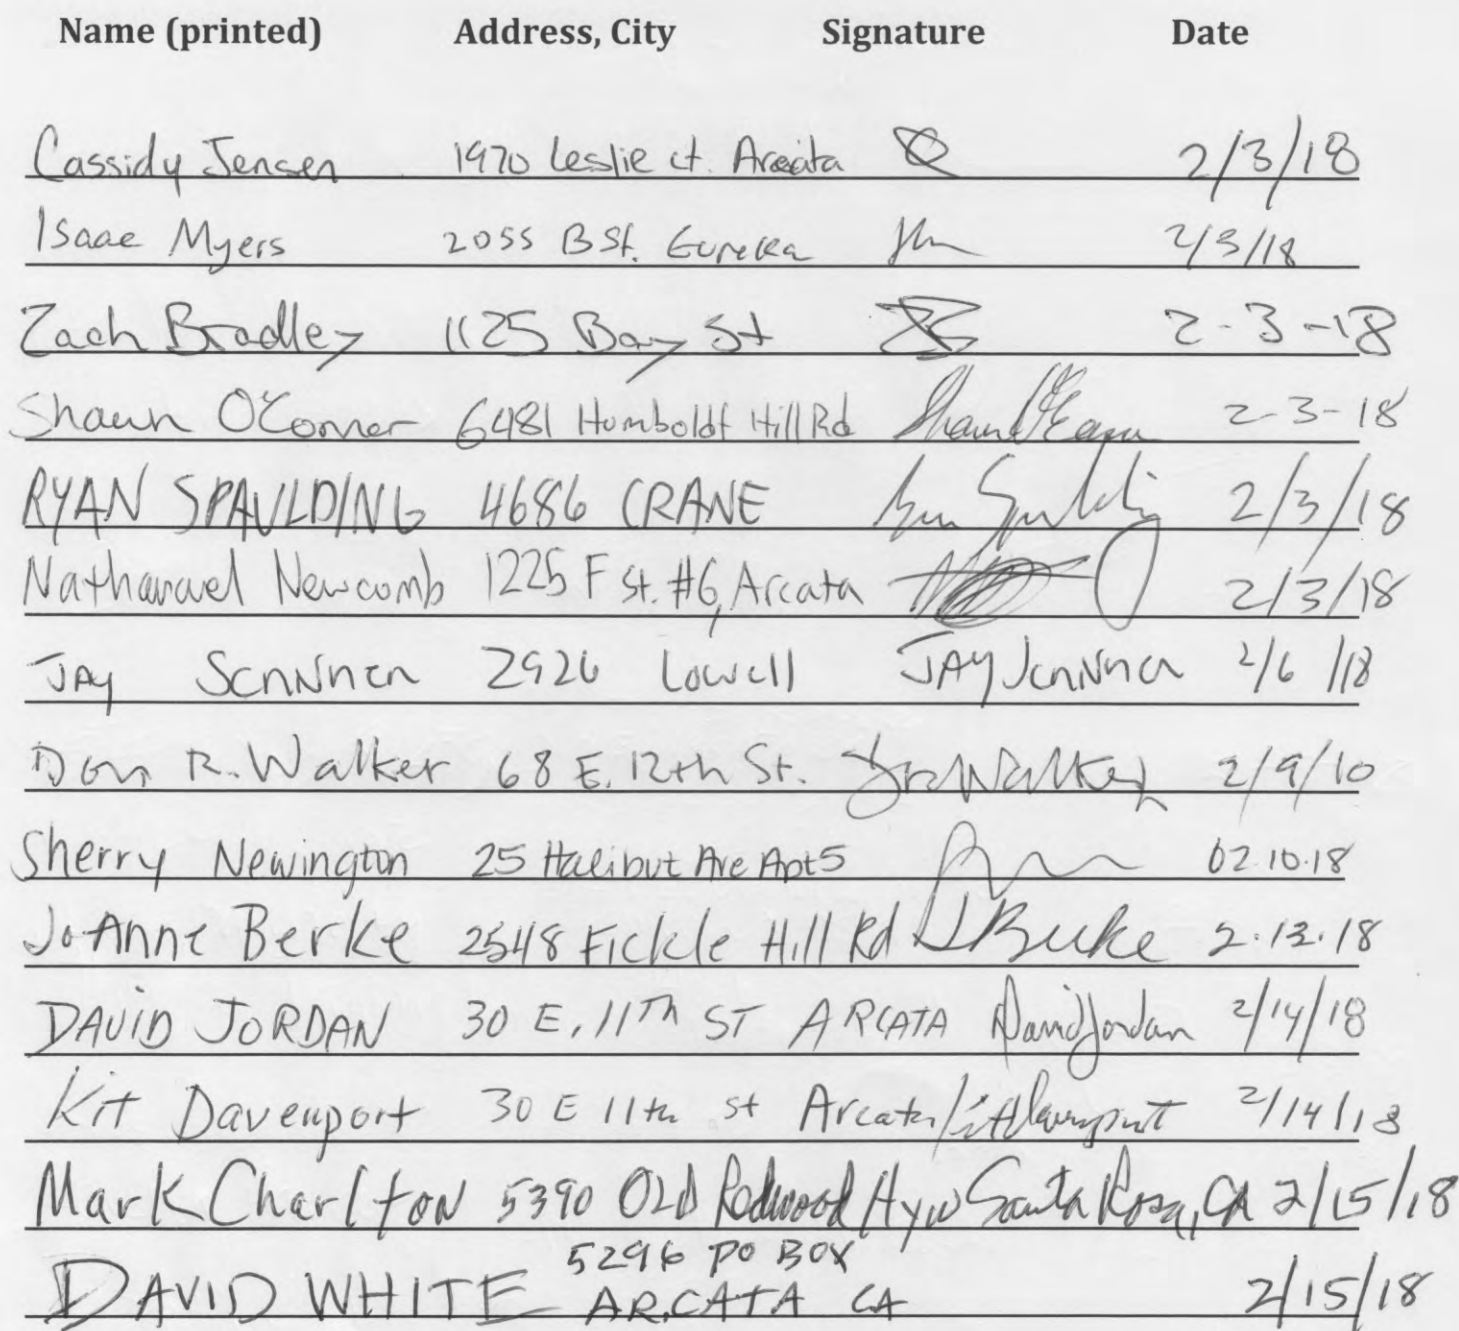 Name (printed) Address, City Signature Date
Cassidy Jensen 1970 Leslie ct. Arcata 2/3/18
Isaac Myers 2055 B St. Eureka 2/3/18
Zach Bradley 1125 Bay St 2-3-18
Shaun O'Conner 6481 Humboldt Hill Rd 2-3-18
RYAN SPAULDING 4686 CRANE 2/3/18
Nathanael Newcomb 1225 F St. #6, Arcata 2/3/18
JAY 2926 Lowell JAY 2/6/18
Don R. Walker 68 E. 12th St. Walker 2/9/10
Sherry Newington 25 Halibut Ave Apt 5 02.10.18
JoAnne Berke 2548 Fickle Hill Rd J Berke 2.13.18
DAVID JORDAN 30 E. 11Th ST ARCATA David Jordan 2/14/18
Kit Davenport 30 E 11th st Arcata Kit Davenport 2/14/18
Mark Charlton 5390 OLD Redwood Hyw Santa Rosa, CA 2/15/18
5296 PO BOX
DAVID WHITE ARCATA CA 2/15/18